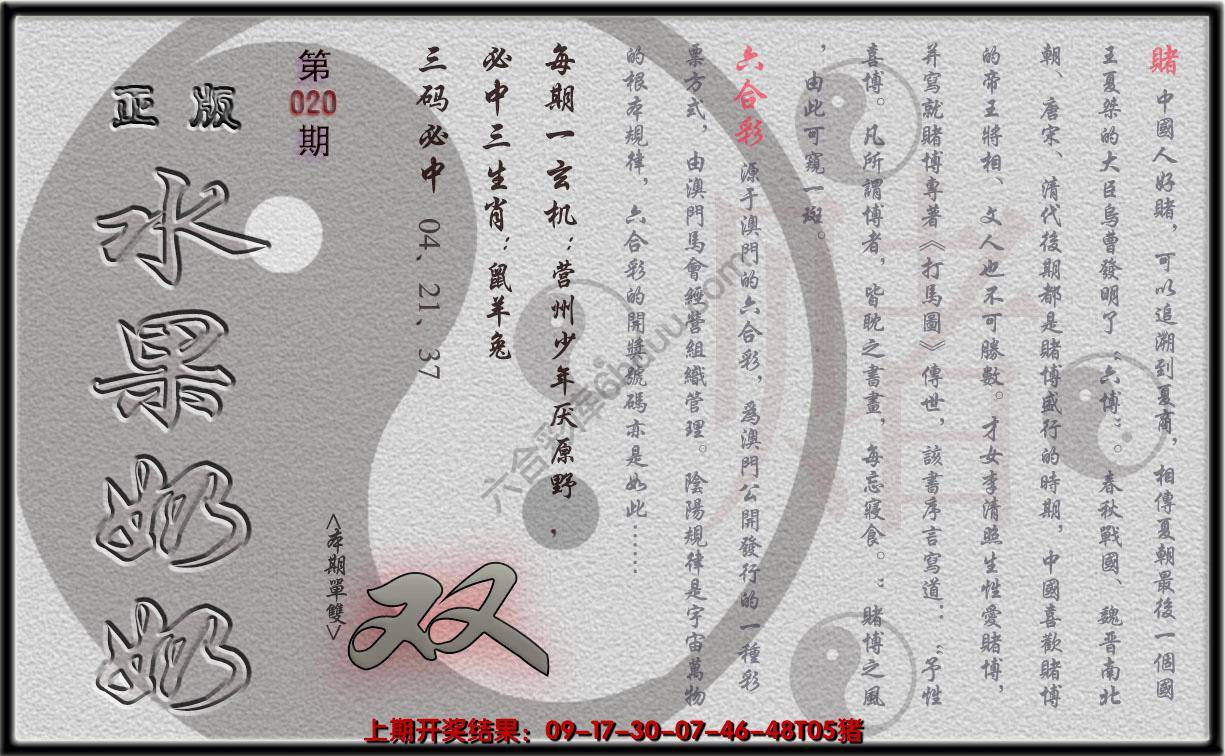 賭 中國人好賭，可以追溯到夏商，相傳夏朝最後一個國
王夏桀的大臣烏曹發明了“六博”。春秋戰國、魏晋南北
朝、唐宋、清代後期都是賭博盛行的時期，中國喜歡賭博
的帝王將相、文人也不可勝數。才女李清照生性愛賭博，
并寫就賭博專著《打馬圖》傳世，該書序言寫道：“予性
喜博。凡所謂博者，皆耽之書畫，每忘寢食。”賭博之風
，由此可窺一斑。
六合彩 源于澳門的六合彩，爲澳門公開發行的一種彩
票方式，由澳門馬會經營組織管理。陰陽規律是宇宙萬物
的根本規律，六合彩的開獎號碼亦是如此……
每期一玄机：营州少年厌原野，
必中三生肖：鼠羊兔
三码必中 04. 21. 37
第
020
期
<本期單雙>
双
正版
水果奶奶
上期开奖结果：09-17-30-07-46-48T05猪